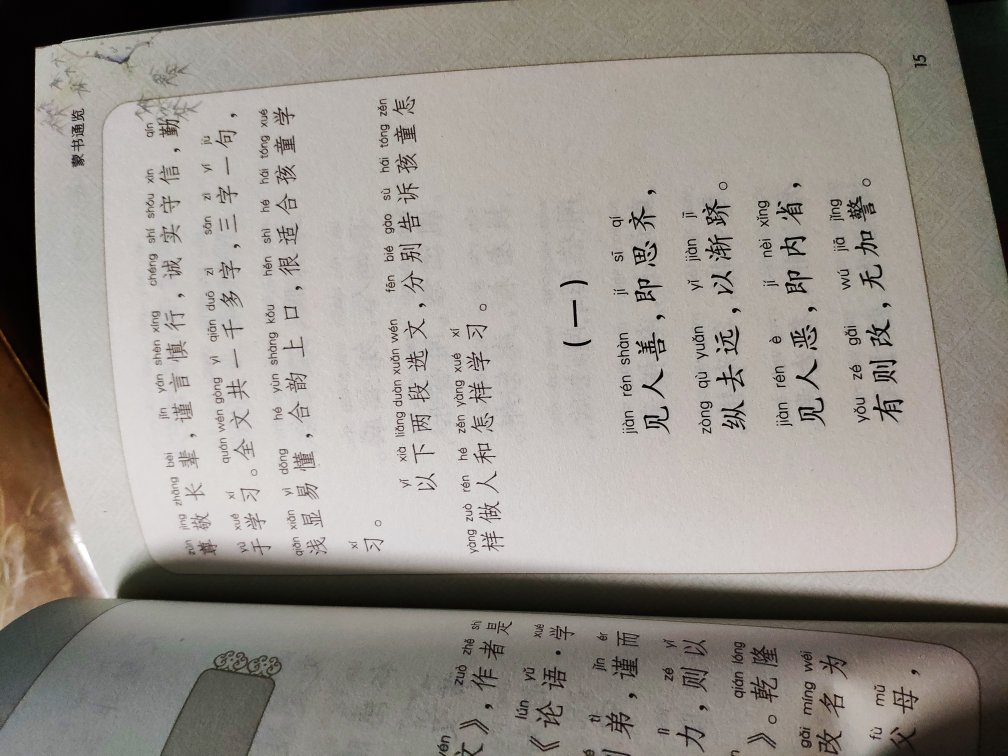 蒙书通览
zūn jìng zhǎng bèi jǐn yán shèn xíng chéng shí shǒu xìn qín
尊敬长辈，谨言慎行，诚实守信，勤
yú xué xí quán wén gòng yì qiān duō zì sān zì yí jù
于学习。全文共一千多字，三字一句，
qiǎn xiǎn yì dǒng hé yùn shàng kǒu hěn shì hé hái tóng xué
浅显易懂，合韵上口，很适合孩童学
xí
习。
yǐ xià liǎng duàn xuǎn wén fēn bié gào sù hái tóng zěn
以下两段选文，分别告诉孩童怎
yàng zuò rén hé zěn yàng xué xí
样做人和怎样学习。
（一）
jiàn rén shàn jí sī qí
见人善，即思齐，
zòng qù yuǎn yǐ jiàn jī
纵去远，以渐跻。
jiàn rén è jí nèi xǐng
见人恶，即内省，
yǒu zé gǎi wú jiā jǐng
有则改，无加警。
15
zuò zhě shì
文》，作者是
lún yǔ xué
《论语·学
tì jǐn ér
弟，谨而
lì zé yǐ
力，则以
qián lóng
》。乾隆
gǎi míng wéi
改名为
fù mǔ
父母，